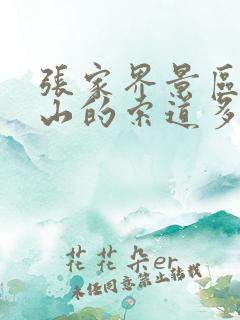 張家界景區
山的索道多
花花朵er
未經同意禁止轉載